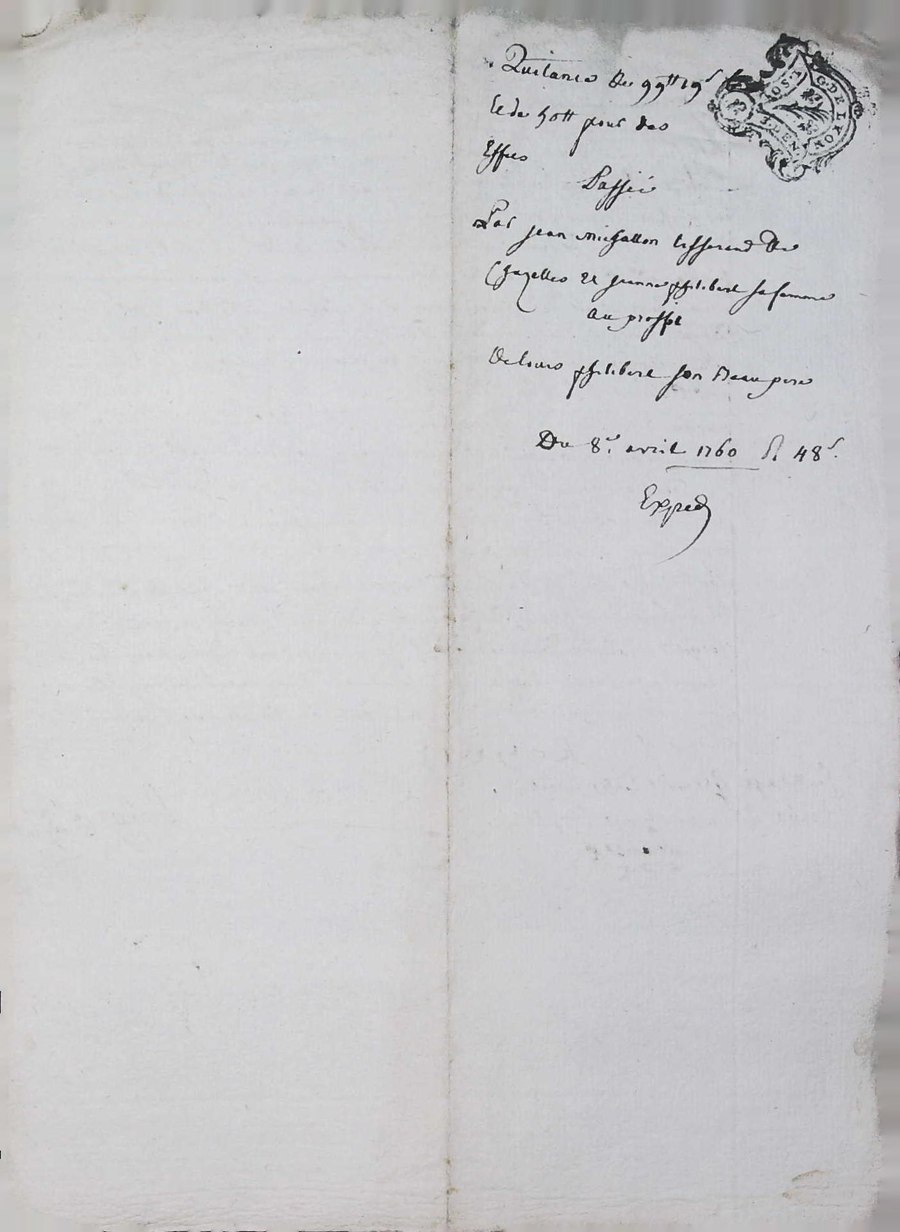 Quitance De 99tt 19s
Et de 50tt pour des
Effies
Passée
Par jean michallon tisserand De
Chazelles Et jeanne philibert sa femme
au proffit
De louis philibert son Beau pere
Du 8e. avril 1760 R 48s.
Exped
G. DE LYON
1. SOL